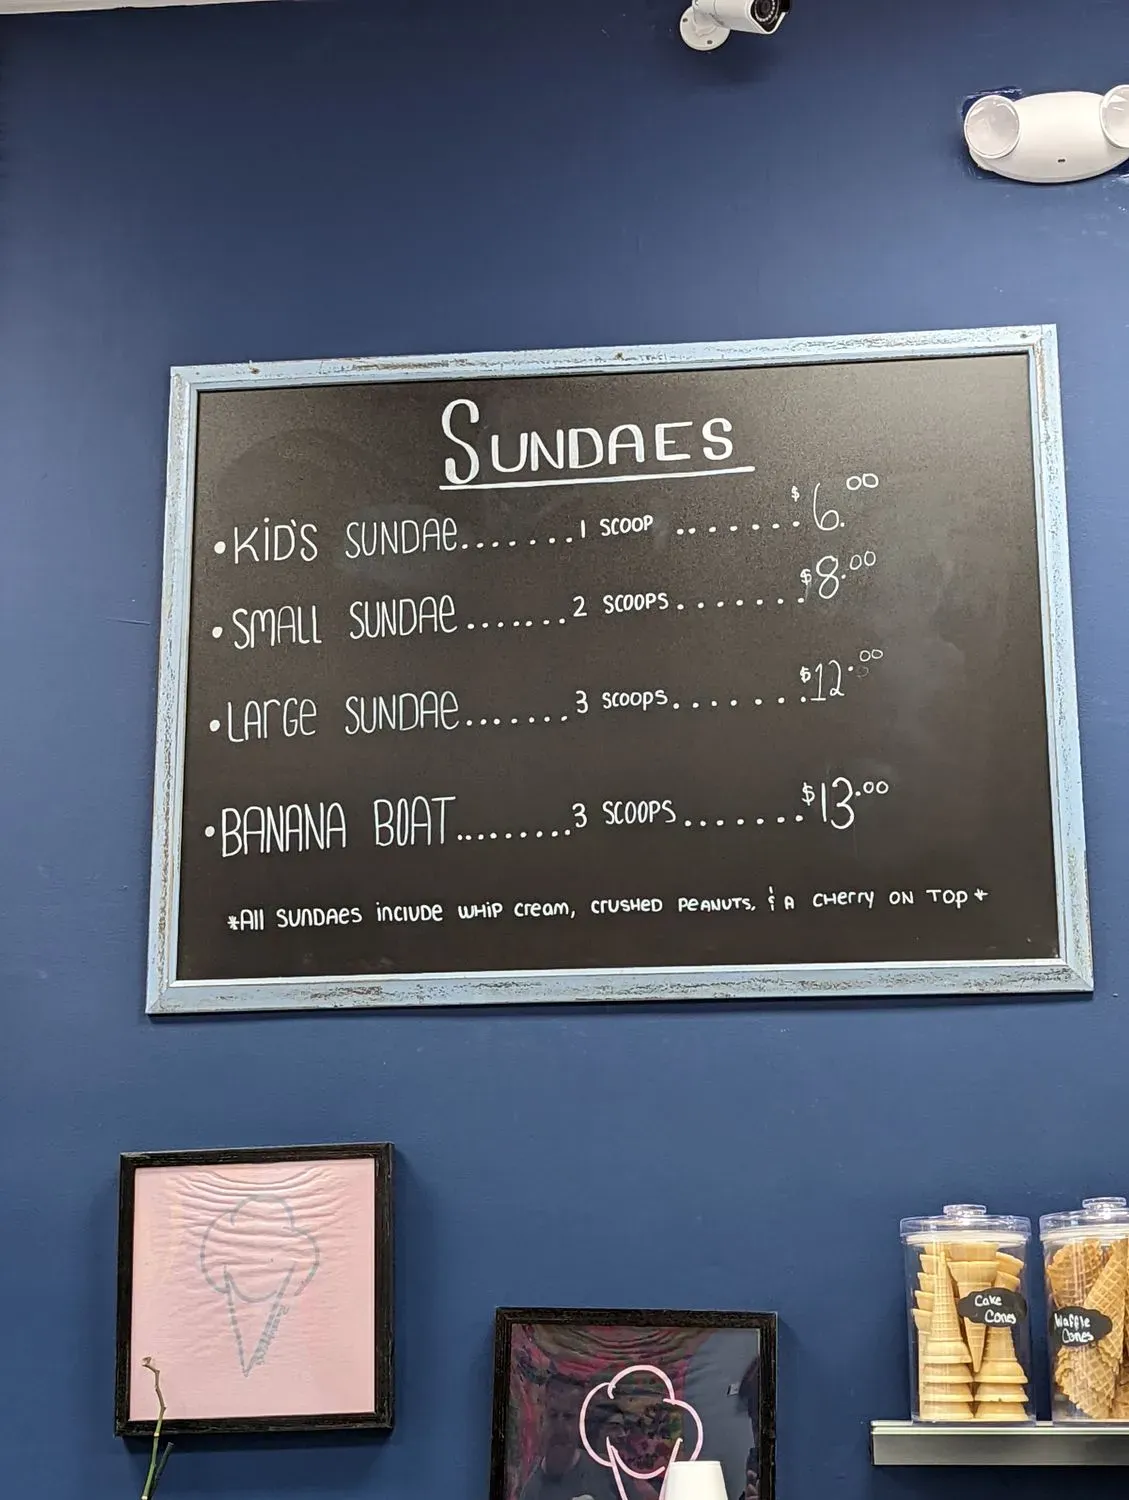 SUNDAES
• KiD'S SUNDAE.......1 SCOOP .......$6.00
• SMALL SUNDAE.......2 SCOOPS.......$8.00
• LARGE SUNDAE.......3 SCOOPS.......$12.00
• BANANA BOAT.........3 SCOOPS.......$13.00
*All SUNDAES inclUDE WHiP Cream, CRUSHED PEANUTS, & A CHerry ON TOP*
Cake
Cones
Waffle
Cones